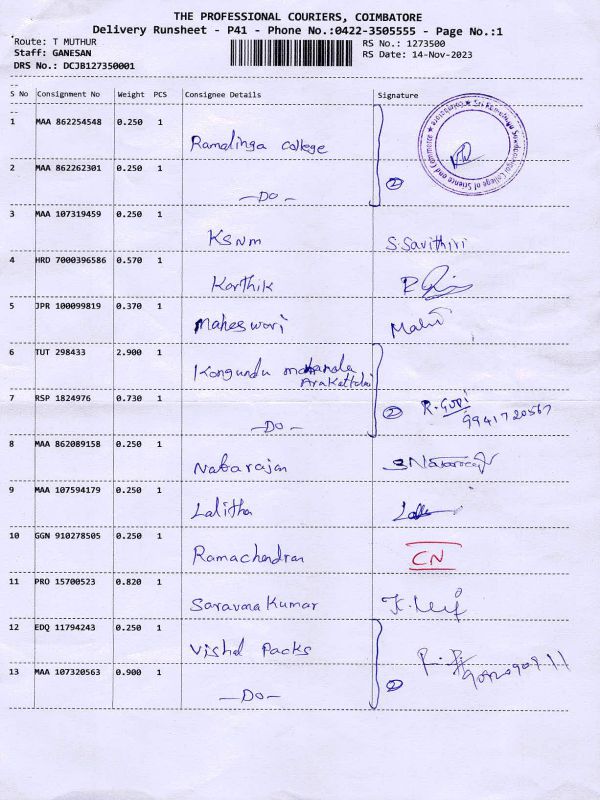 THE PROFESSIONAL COURIERS, COIMBATORE
Delivery Runsheet - P41 - Phone No.:0422-3505555 - Page No.:1
Route: T MUTHUR
RS No.: 1273500
Staff: GANESAN
RS Date: 14-Nov-2023
DRS No.: DCJB127350001
S No Consignment No Weight PCS Consignee Details Signature
1 MAA 862254548 0.250 1 Ramalinga college
2 MAA 862262301 0.250 1 —DO— 2
3 MAA 107319459 0.250 1 KSNM S.Savithiri
4 HRD 7000396586 0.570 1 Karthik
5 JPR 100099819 0.370 1 Maheswari
6 TUT 298433 2.900 1 Kongundu
Arakattalai
7 RSP 1824976 0.730 1 —DO— 2 R.GOPI
9941720567
8 MAA 862089158 0.250 1 Nabarajan
9 MAA 107594179 0.250 1 Lalitha
10 GGN 910278505 0.250 1 Ramachandran CN
11 PRO 15700523 0.820 1 Saravana Kumar
12 EDQ 11794243 0.250 1 Vishal Packs
13 MAA 107320563 0.900 1 —DO— 2